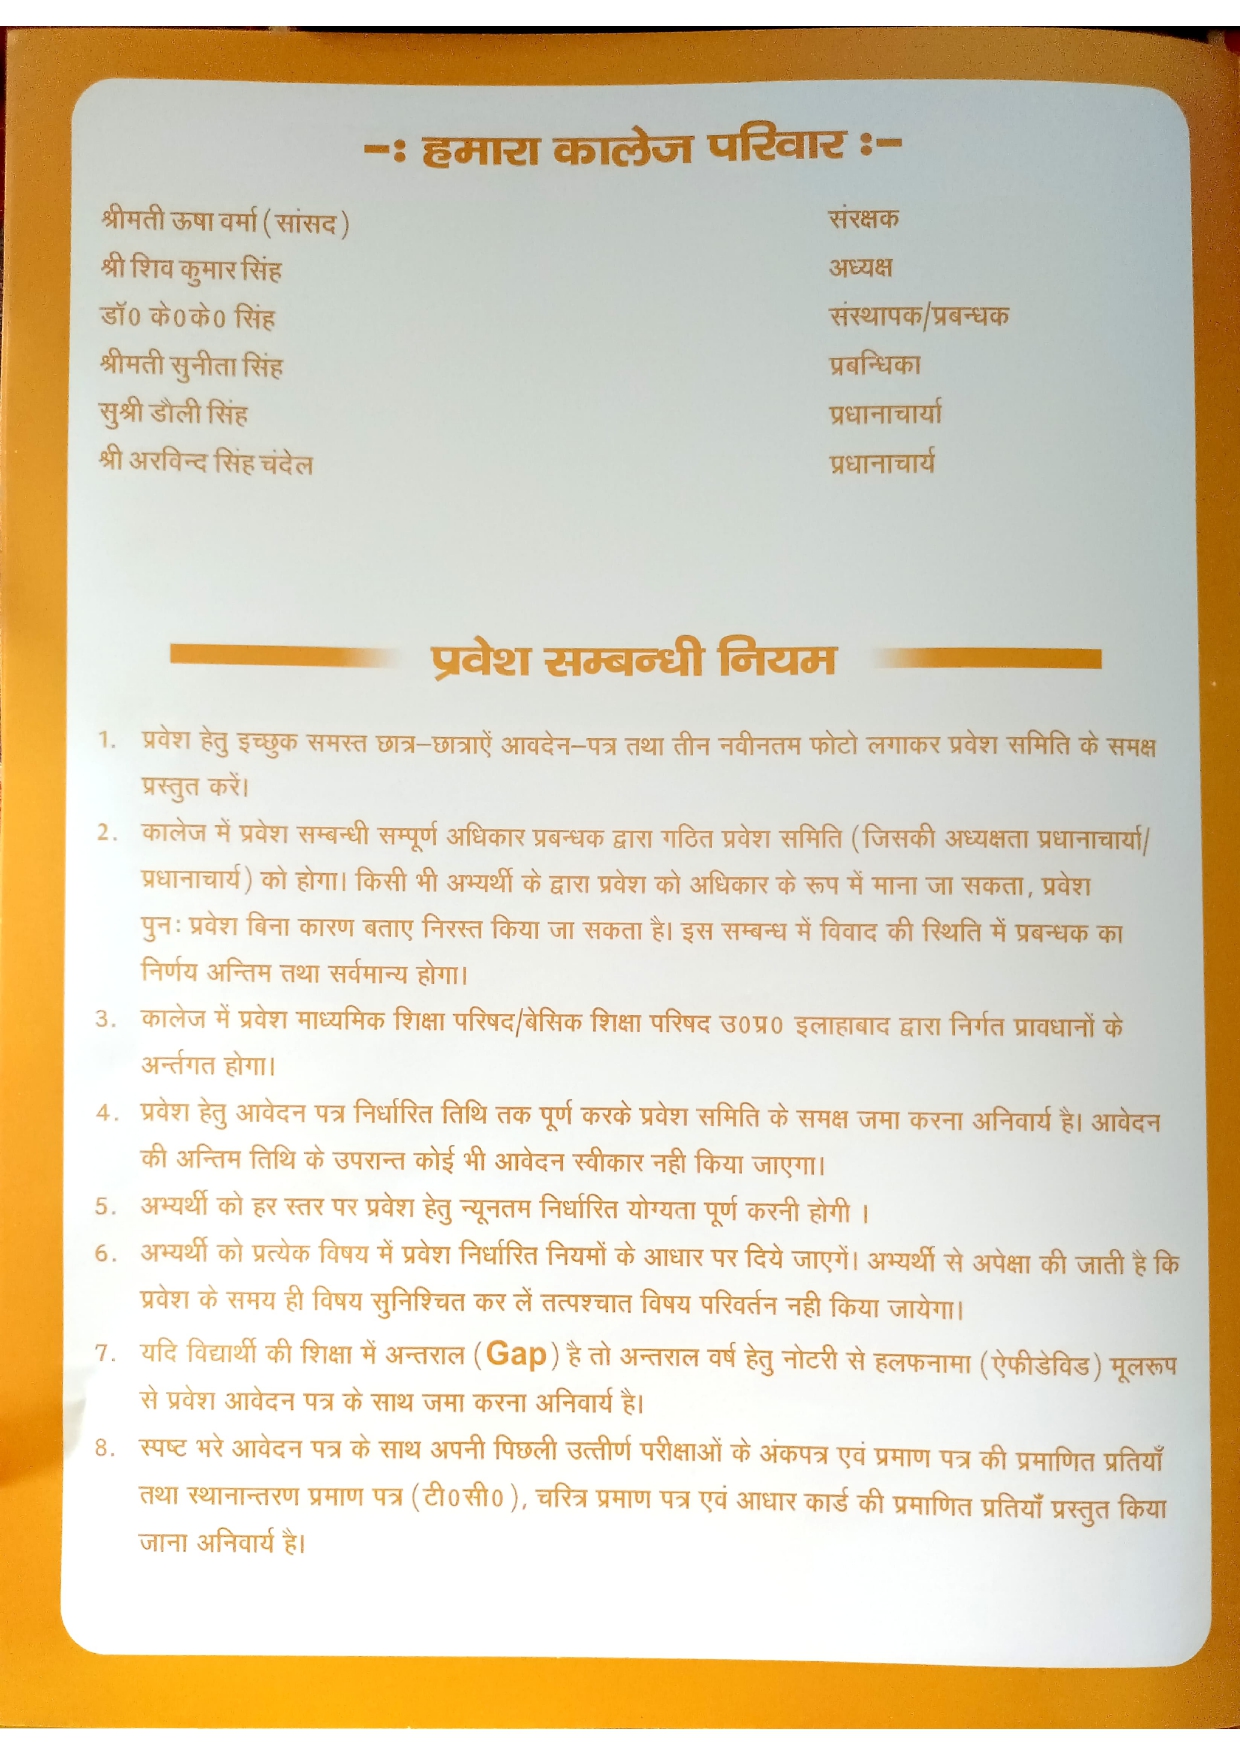 -: हमारा कालेज परिवार :-
श्रीमती ऊषा वर्मा (सांसद) संरक्षक
श्री शिव कुमार सिंह अध्यक्ष
डॉ0 के0के0 सिंह संस्थापक/प्रबन्धक
श्रीमती सुनीता सिंह प्रबन्धिका
सुश्री डौली सिंह प्रधानाचार्या
श्री अरविन्द सिंह चंदेल प्रधानाचार्य
प्रवेश सम्बन्धी नियम
1. प्रवेश हेतु इच्छुक समस्त छात्र-छात्राऐं आवदेन-पत्र तथा तीन नवीनतम फोटो लगाकर प्रवेश समिति के समक्ष
प्रस्तुत करें।
2. कालेज में प्रवेश सम्बन्धी सम्पूर्ण अधिकार प्रबन्धक द्वारा गठित प्रवेश समिति (जिसकी अध्यक्षता प्रधानाचार्या/
प्रधानाचार्य) को होगा। किसी भी अभ्यर्थी के द्वारा प्रवेश को अधिकार के रूप में माना जा सकता, प्रवेश
पुनः प्रवेश बिना कारण बताए निरस्त किया जा सकता है। इस सम्बन्ध में विवाद की स्थिति में प्रबन्धक का
निर्णय अन्तिम तथा सर्वमान्य होगा।
3. कालेज में प्रवेश माध्यमिक शिक्षा परिषद/बेसिक शिक्षा परिषद उ0प्र0 इलाहाबाद द्वारा निर्गत प्रावधानों के
अर्न्तगत होगा।
4. प्रवेश हेतु आवेदन पत्र निर्धारित तिथि तक पूर्ण करके प्रवेश समिति के समक्ष जमा करना अनिवार्य है। आवेदन
की अन्तिम तिथि के उपरान्त कोई भी आवेदन स्वीकार नही किया जाएगा।
5. अभ्यर्थी को हर स्तर पर प्रवेश हेतु न्यूनतम निर्धारित योग्यता पूर्ण करनी होगी ।
6. अभ्यर्थी को प्रत्येक विषय में प्रवेश निर्धारित नियमों के आधार पर दिये जाएगें। अभ्यर्थी से अपेक्षा की जाती है कि
प्रवेश के समय ही विषय सुनिश्चित कर लें तत्पश्चात विषय परिवर्तन नही किया जायेगा।
7. यदि विद्यार्थी की शिक्षा में अन्तराल (Gap) है तो अन्तराल वर्ष हेतु नोटरी से हलफनामा (ऐफीडेविड) मूलरूप
से प्रवेश आवेदन पत्र के साथ जमा करना अनिवार्य है।
8. स्पष्ट भरे आवेदन पत्र के साथ अपनी पिछली उत्तीर्ण परीक्षाओं के अंकपत्र एवं प्रमाण पत्र की प्रमाणित प्रतियाँ
तथा स्थानान्तरण प्रमाण पत्र (टी0सी0), चरित्र प्रमाण पत्र एवं आधार कार्ड की प्रमाणित प्रतियाँ प्रस्तुत किया
जाना अनिवार्य है।